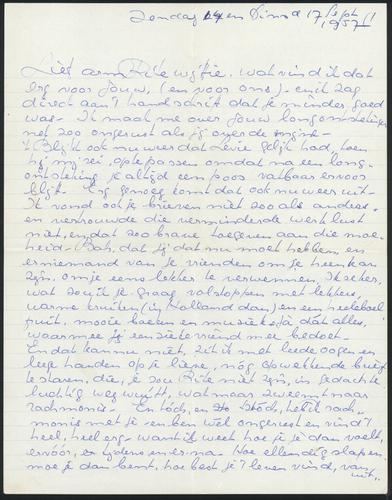 Zondag 14 en Dinsd 17 Sept
1957!!
Lief arm Rite wijfie. Wat vind ik dat
erg voor jouw, (en voor ons) - en ik zag
direct aan 't handschrift dat je minder goed
was - Ik maak me over jouw longontstekingen
net zoo ongerust als jij over de mijne -
't Blijkt ook nu weer dat Levie gelijk had, toen
hij mij zei, op te passen omdat na een long-
ontsteking je altijd een poos vatbaar ervoor
blijft - Erg genoeg komt dat ook nu weer uit -
Ik vond ook je brieven niet zoo als anders -
en vertrouwde die verminderde werklust
niet, en dat zoo brave toegeven aan die moe-
heid - Bah, dat jij dat nu moet hebben, en
er niemand van je vrienden om je heen kan
zijn, om je eens lekker te verwennen, ik zeker,
wat zou ik je graag volstoppen met lekkere,
warme kruiken (in Holland dan) en een heeleboel
fruit, mooie boeken en muziek - Ja dat alles,
waarmee jij een zieke vriend mee bedoelt -
En dat kan nu niet, zit ik met leede oogen en
leege handen op je liene, nog opwekkende brief
te staren, die, o zou Rite niet zijn, in gedachte
luchtig weg wuift, wat maar zweemt naar
rachmonis - En toch, en stoch, heb ik rach-
monis met je - en ben wel ongerust en vind 't
heel, heel erg - want ik weet hoe je je dan voelt,
ervóór, er tijdens en erna - Hoe ellendig slapen
moe je dan bent, hoe best je 't leven vind, van
uit,